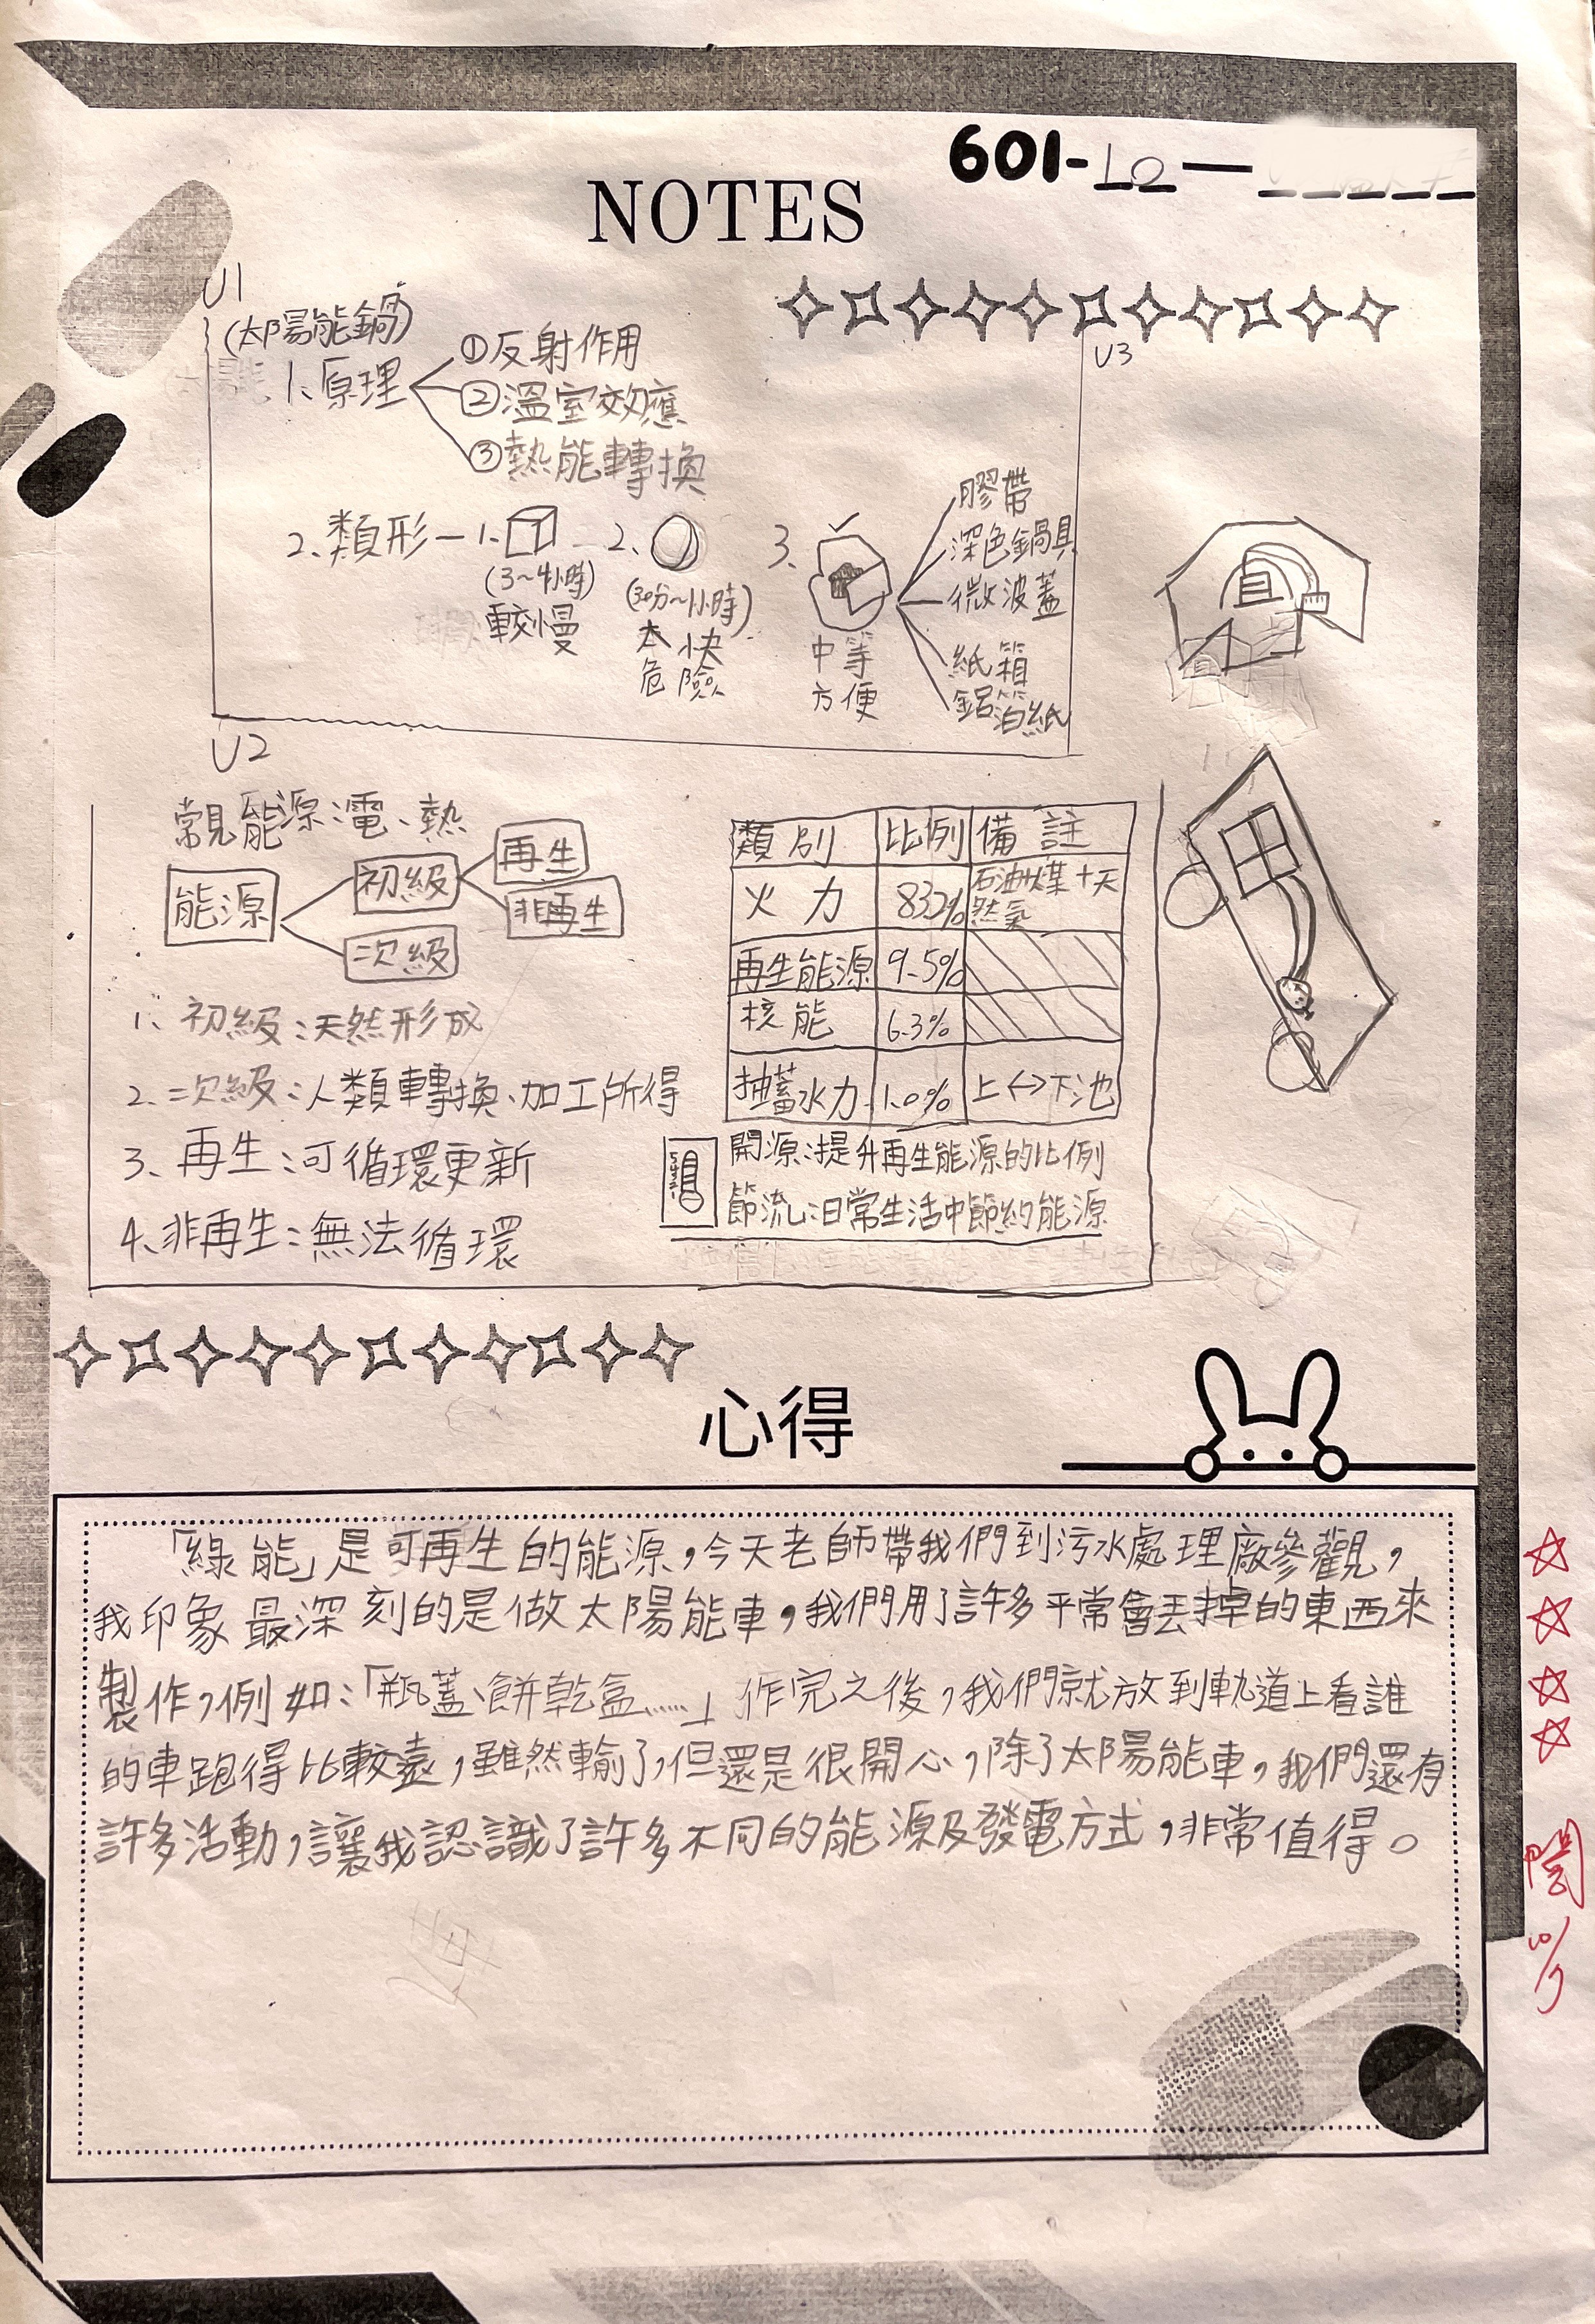 601-10
NOTES
U1
(太陽能鍋)
1、原理
①反射作用
②溫室效應
③熱能轉換
2、類形－1.
(3~4小時)
較慢
2、
(30分~1小時)
太快
危險
3、
中等
方便
膠帶
深色鍋具
微波蓋
紙箱
鋁箔紙
U3
U2
常見能源：電、熱
能源
初級
次級
再生
非再生
1、初級：天然形成
2、二次級：人類轉換、加工所得
3、再生：可循環更新
4、非再生：無法循環
類別 比例 備註
火力 83.2% 石油煤＋天然氣
再生能源 9.5%
核能 6.3%
抽蓄水力 1.0% 上↔下池
開源：提升再生能源的比例
節流：日常生活中節約能源
心得
「綠能」是可再生的能源，今天老師帶我們到污水處理廠參觀，
我印象最深刻的是做太陽能車，我們用了許多平常會丟掉的東西來
製作，例如：「瓶蓋、餅乾盒……」作完之後，我們就放到軌道上看誰
的車跑得比較遠，雖然輸了，但還是很開心，除了太陽能車，我們還有
許多活動，讓我認識了許多不同的能源及發電方式，非常值得。
閱